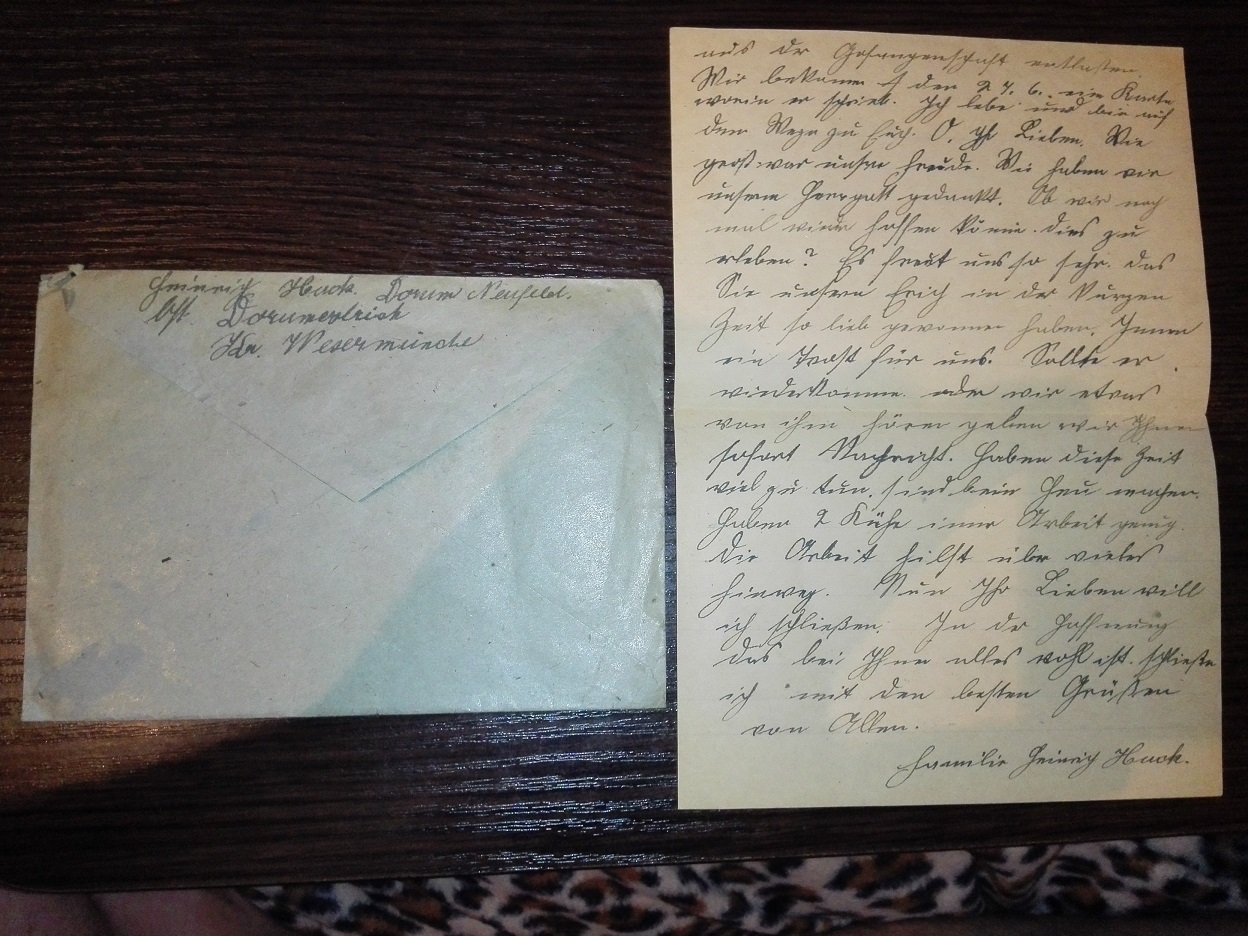 Heinrich Huck Dorum Neufeld.
Dorumerstrich
Kr. Wesermünde
aus dr Gefangenschaft entlassen.
Wir bekamen den 24.6. ein Karte
worin er schrieb. Ich lebe und bin auf
dem Wege zu Euch. O, Ihr Lieben. Wie
groß war unsre Freude. Wie haben wir
unserm Herrgott gedankt. Ob wir noch
mal wieder hoffen könn dies zu
erleben? Es freut uns so sehr. das
Sie unsern Erich in dr kurzen
Zeit so lieb gewonnen haben. Immer
ein Trost für uns. Sollte er
wiederkomme. oder wir etwas
von ihm hören geben wir Ihnen
sofort Nachricht. Haben diese Zeit
viel zu tun, sind beim Heu machen.
Haben 2 Kühe immer Arbeit genug.
Die Arbeit hilft über vieles
hinweg. Nun Ihr Lieben will
ich schließen. In dr Hoffnung
das bei Ihnen alles wohl ist. schließe
ich mit den besten Grüßen
von Allen.
Familie Heinrich Huck.